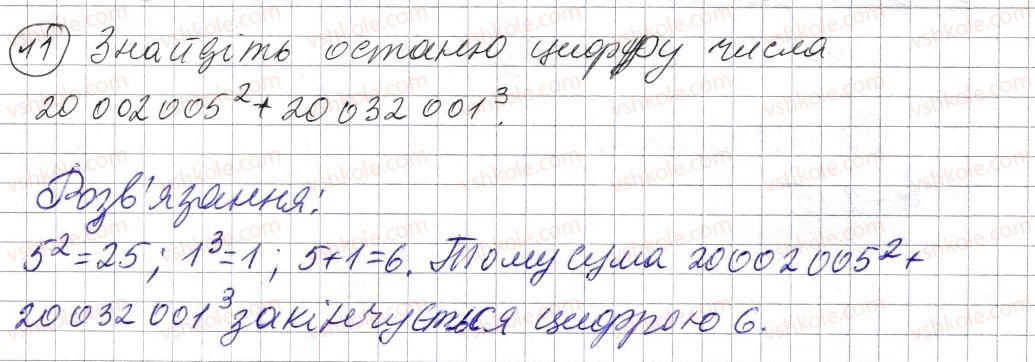 11 Знайдіть останню цифру числа
20 002 005² + 20 032 001³.
Розв'язання:
5² = 25; 1³ = 1; 5+1=6. Тому сума 20002005² +
20 032 001³ закінчується цифрою 6.